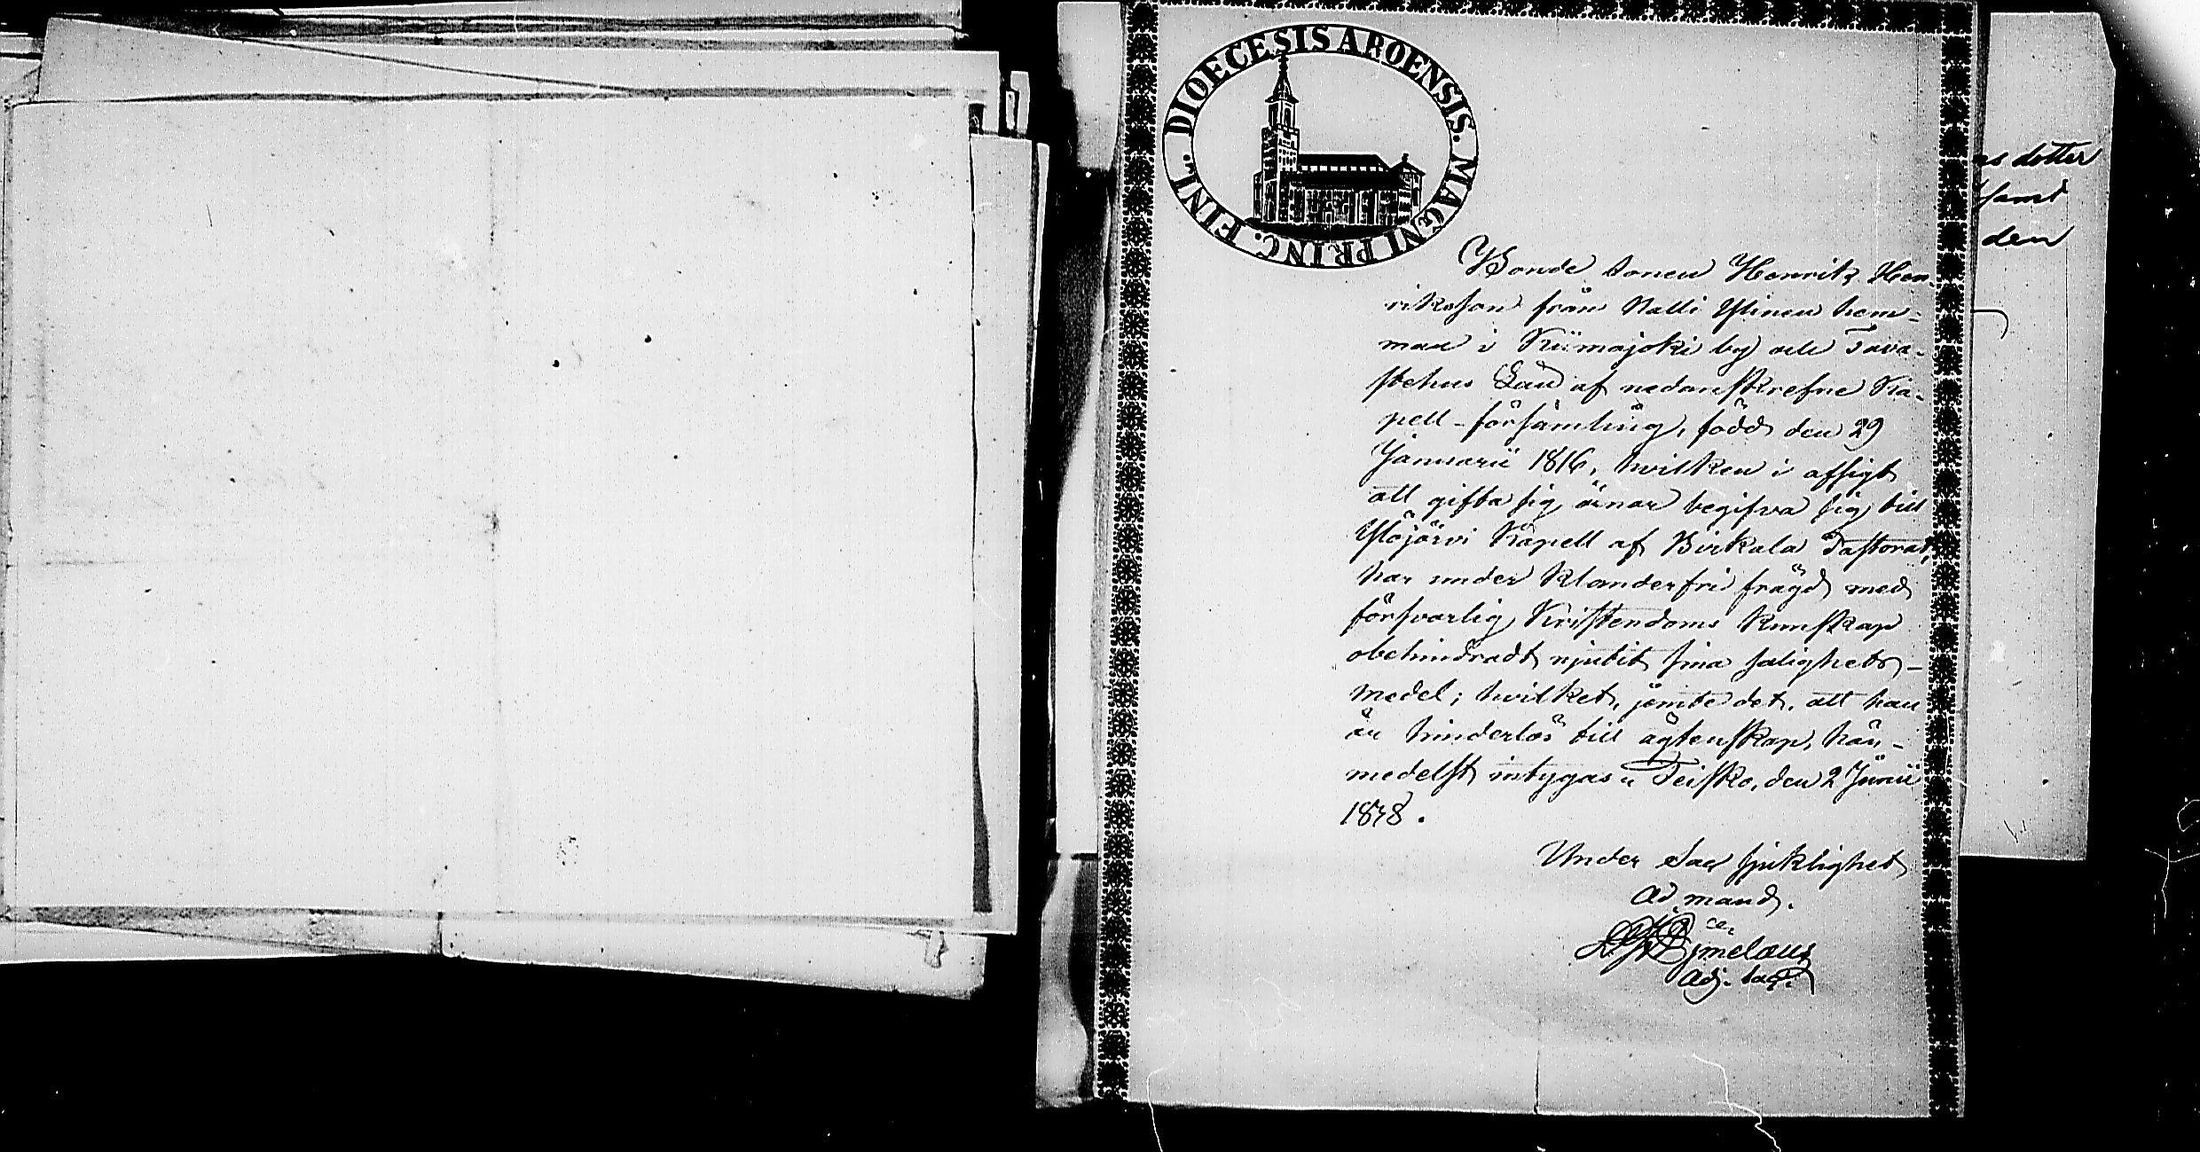 DIOECESIS ABOENSIS. MAGNI PRINC. FINL.
Bonde sonen Henrik Hen-
riksson från Nalli Ylinen hem-
man i Kiimajoki by och Tava-
stehus Län af nedanskrefne Ka-
pell-församling, född den 29
Januarii 1816, hvilken i afsigt
att gifta sig ärnar begifva sig till
Ylöjärvi Kapell af Birkala Pastorat,
har under klanderfri frägd med
försvarlig Kristendoms kunskap
obehindradt njutit sina salighets-
medel; hvilket, jemte det, att han
är hinderlös till ägtenskap, här-
medelst intygas. Teisko, den 2 Junii
1848.
Under Sac. sjuklighet
ad mand.
Adj. Sac.
dotter
samt
den